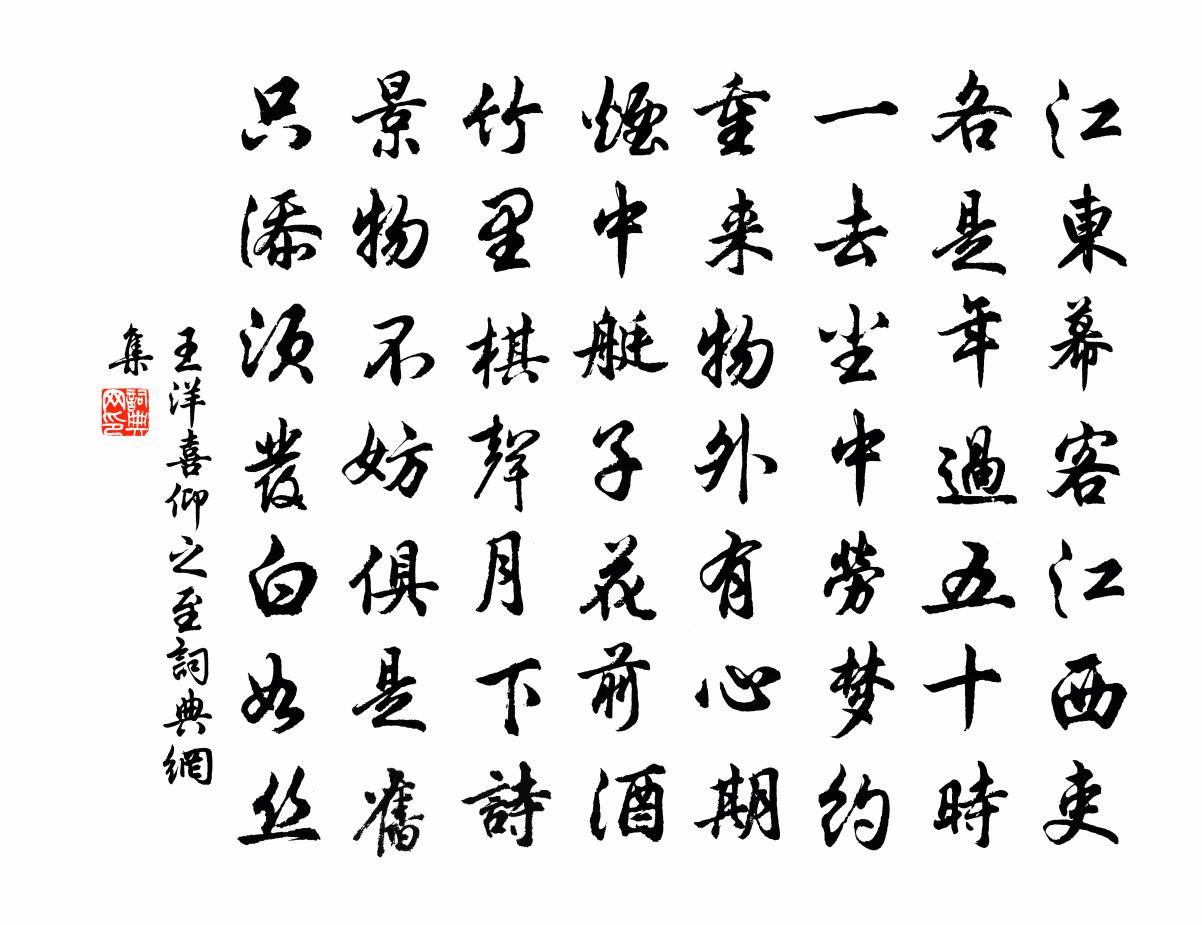 江東幕客江西吏
各是年過五十時
一去尘中勞梦約
重来物外有心期
煙中艇子花前酒
竹里棋聲月下詩
景物不妨俱是舊
只添须发白如丝
王洋喜仰之至詞典網
集
詞典網印